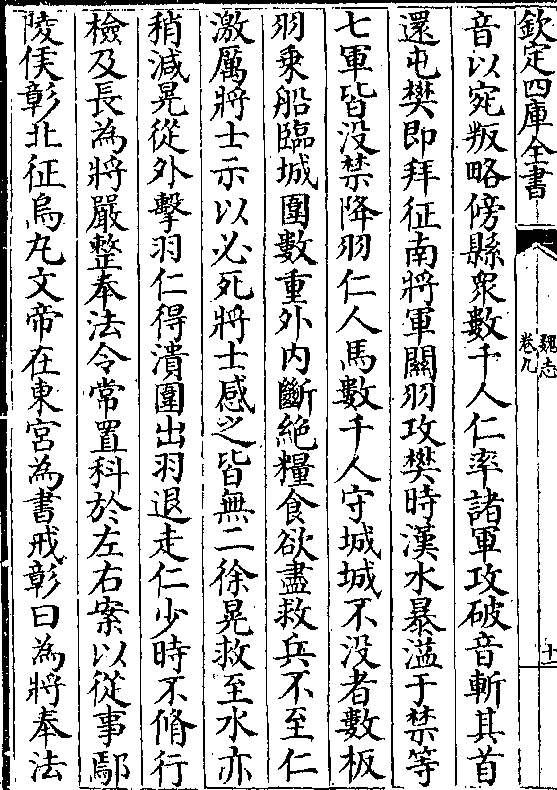 欽定四庫全書
魏志
卷九
十
音以宛叛略傍縣衆數千人仁率諸軍攻破音斬其首
還屯樊即拜征南將軍關羽攻樊時漢水暴溢于禁等
七軍皆没禁降羽仁人馬數千人守城城不没者數板
羽乗船臨城圍數重外内斷絶糧食欲盡救兵不至仁
激厲將士示以必死將士感之皆無二徐晃救至水亦
稍減晃從外擊羽仁得潰圍出羽退走仁少時不脩行
檢及長為將嚴整奉法令常置科於左右案以從事鄢
陵侯彰北征烏丸文帝在東宫為書戒彰曰為將奉法